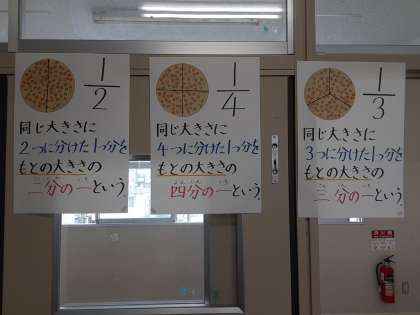 1/2
同じ大きさに
2つに分けた1つ分を
もとの大きさの
二分の一という。
1/4
同じ大きさに
4つに分けた1つ分を
もとの大きさの
四分の一という。
1/3
同じ大きさに
3つに分けた1つ分を
もとの大きさの
三分の一という。
消火器